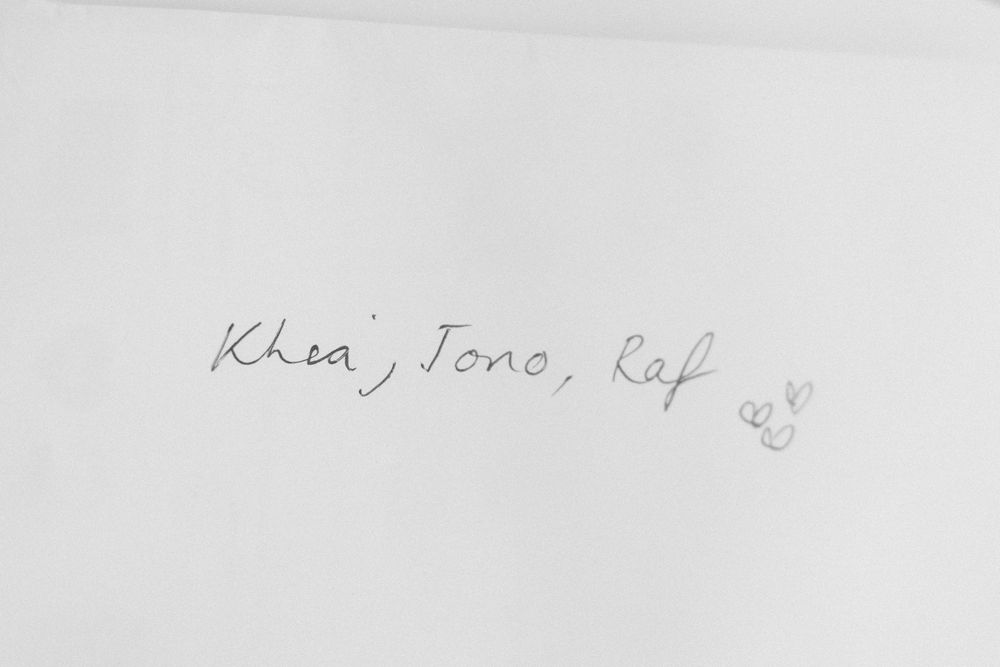 Khea, Jono, Raf